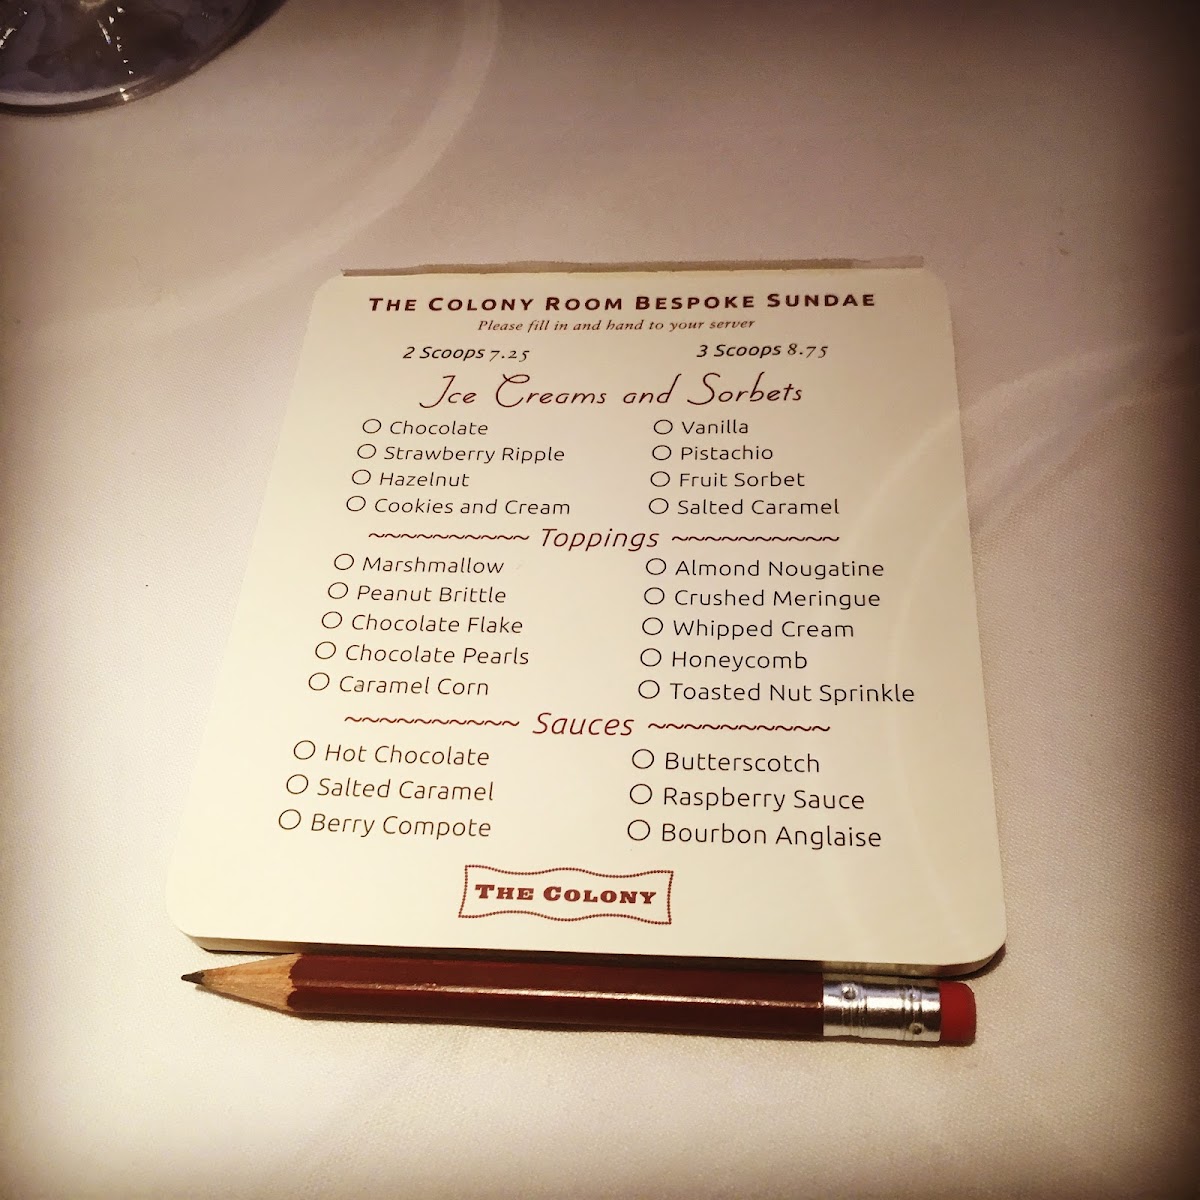 The Colony Room Bespoke Sundae
Please fill in and hand to your server
2 Scoops 7.25 3 Scoops 8.75
Ice Creams and Sorbets
Chocolate Vanilla
Strawberry Ripple Pistachio
Hazelnut Fruit Sorbet
Cookies and Cream Salted Caramel
~~~~~~~~~~ Toppings ~~~~~~~~~~
Marshmallow Almond Nougatine
Peanut Brittle Crushed Meringue
Chocolate Flake Whipped Cream
Chocolate Pearls Honeycomb
Caramel Corn Toasted Nut Sprinkle
~~~~~~~~~~ Sauces ~~~~~~~~~~
Hot Chocolate Butterscotch
Salted Caramel Raspberry Sauce
Berry Compote Bourbon Anglaise
The Colony